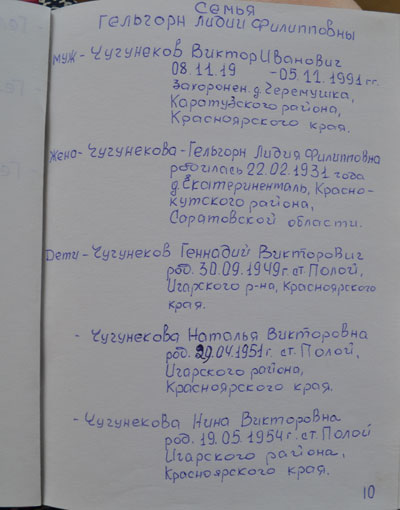 Семья
Гельгорн Лидии Филипповны
муж - Чугунеков Виктор Иванович
08.11.19 - 05.11.1991 гг.
Захоронен д. Черемушка,
Каратузского района,
Красноярского края.
жена - Чугунекова - Гельгорн Лидия Филипповна
родилась 22.02.1931 года
д. Екатериненталь, Красно-
кутского района,
Саратовской области.
Дети - Чугунеков Геннадий Викторович
род. 30.09.1949 г. ст. Полой,
Игарского р-на, Красноярского
края.
- Чугунекова Наталья Викторовна
род. 29.04.1951 г. ст. Полой,
Игарского района,
Красноярского края.
- Чугунекова Нина Викторовна
род. 19.05.1954 г. ст. Полой
Игарского района,
Красноярского края.
10